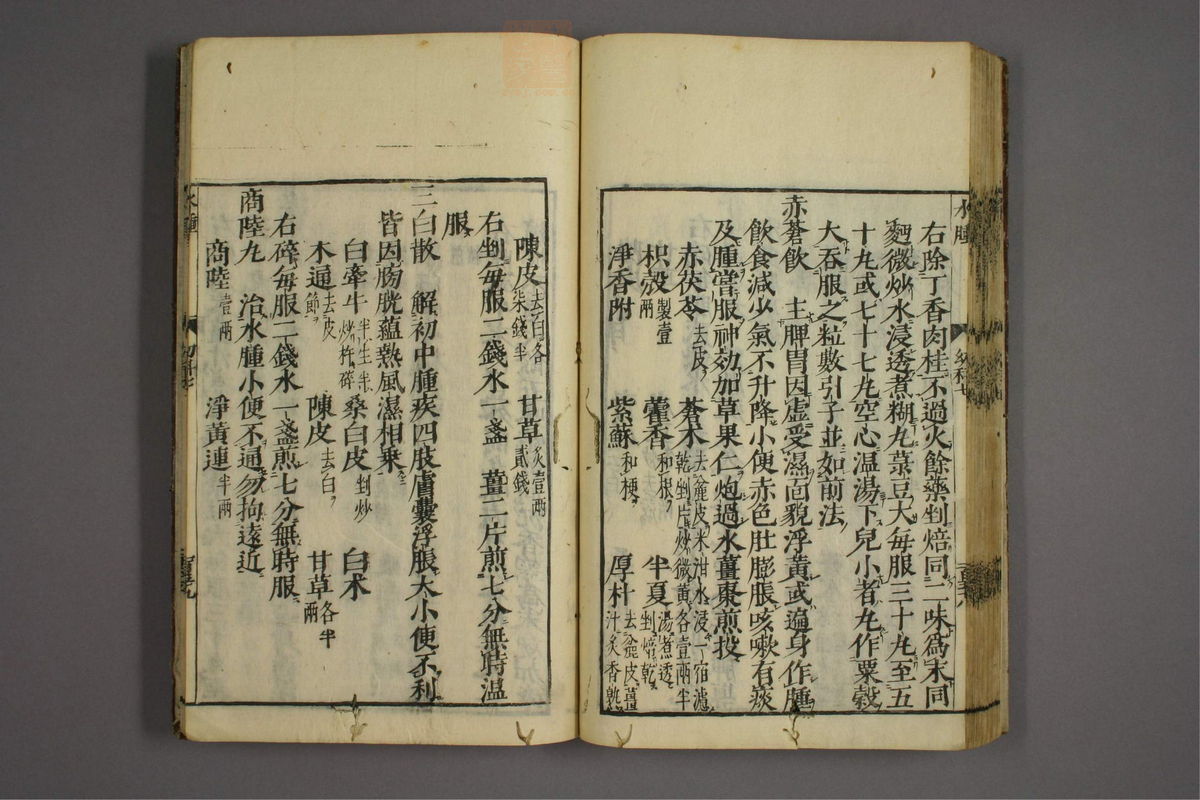 水腫
幼科七
百三十八
右除丁香肉桂不過火餘藥剉焙同二味爲末同
麪微炒水浸透煮糊丸菉豆大每服三十丸至五
十丸或七十七丸空心温湯下兒小者丸作粟穀
大吞服之粒數引子並如前法
赤蒼飲　主脾胃因虚受濕面貌浮黄或遍身作腫
飲食減少氣不升降小便赤色肚膨脹咳嗽有痰
及腫嘗服神効加草果仁炮過水薑棗煎投
赤茯苓去皮　蒼朮去麄皮米泔水浸一宿濾乾剉片炒微黄各壹兩半
枳殻製壹兩　藿香和根　半夏湯煮透剉焙乾
淨香附　紫蘇和梗　厚朴去麄皮薑汁炙香乾
陳皮去白各柒錢半　甘草炙壹兩貳錢
右剉每服二錢水一盞　薑二片煎七分無時温
服
三白散　解初中腫疾四肢膚囊浮脹大小便不利
皆因膀胱蘊熱風濕相乗
白牽牛半生半炒杵碎　桑白皮剉炒　白朮
木通去皮節　陳皮去白　甘草各半兩
右碎每服二錢水一盞煎七分無時服
商陸丸　治水腫小便不通勿拘遠近
商陸壹兩　淨黄連半兩
水腫